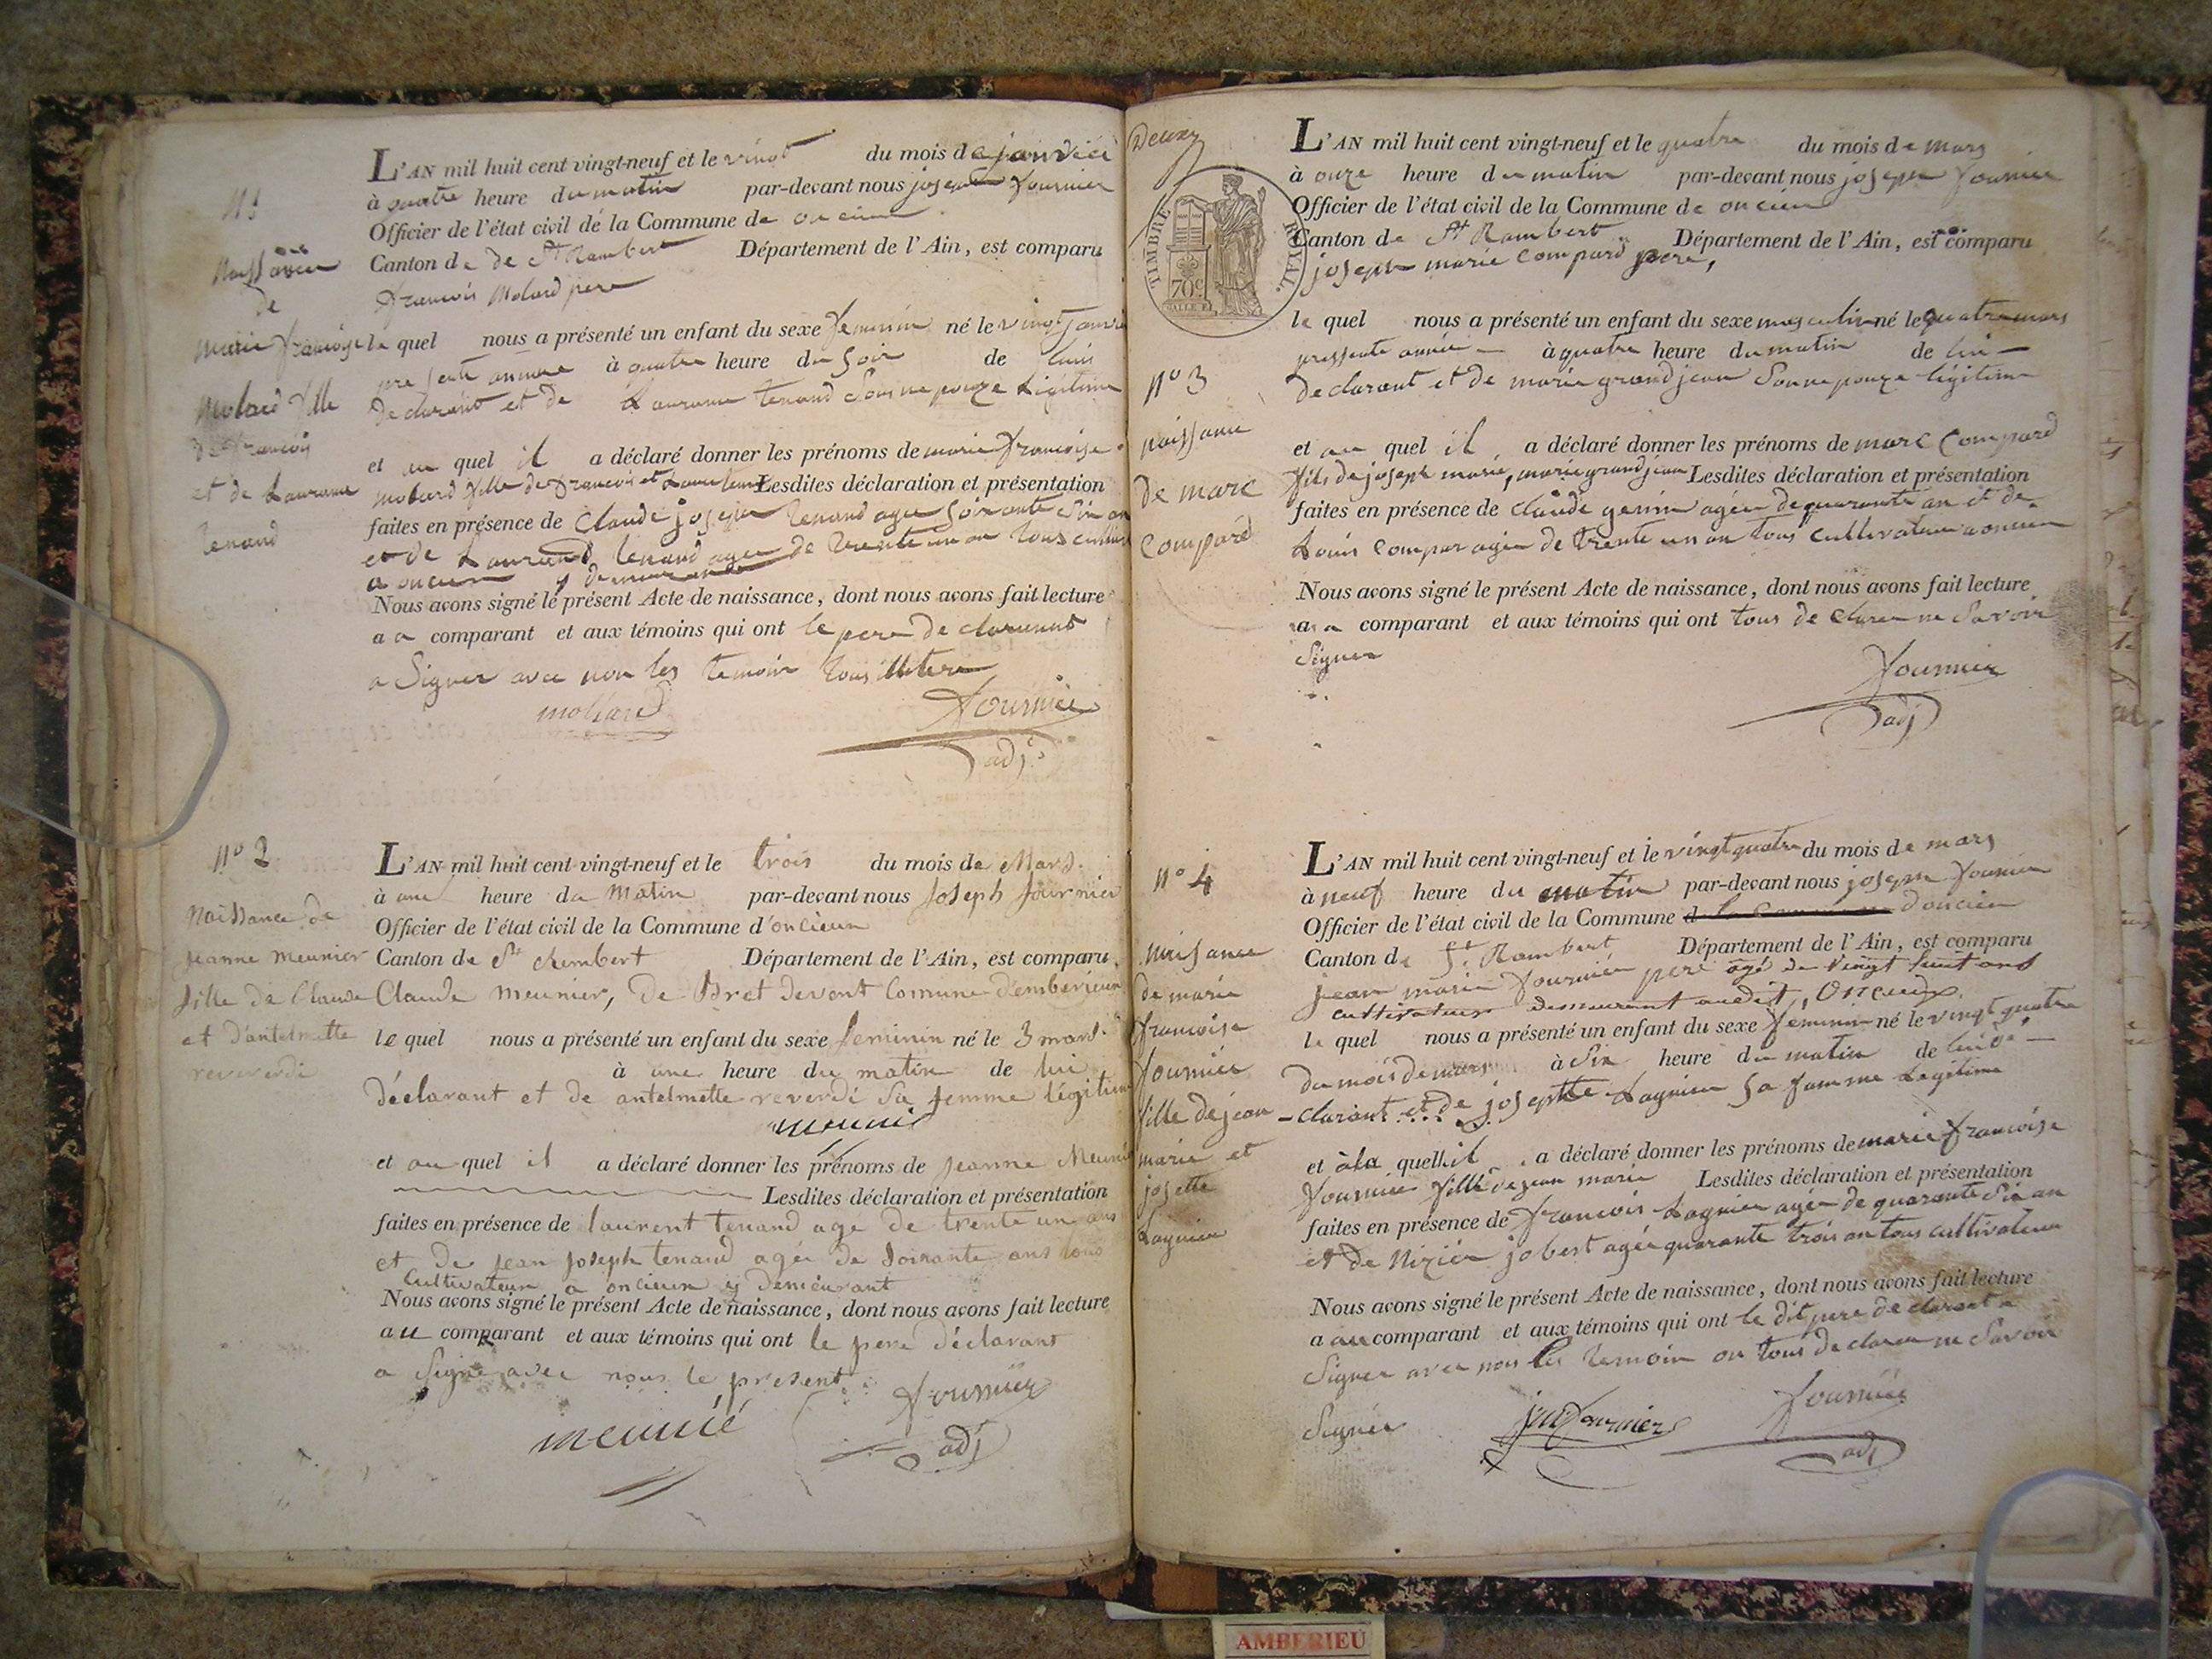 N 1
Naissance
de
Marie françoise
Molard fille
de francois
et de Laurance
tenand
L'AN mil huit cent vingt-neuf et le vingt du mois de janvier
à quatre heure du matin par-devant nous joseph fournier
Officier de l'état civil de la Commune de oncieu
Canton de de St Rambert Département de l'Ain, est comparu
francois Molard pere
le quel nous a présenté un enfant du sexe feminin né le vingt janvier
presente annee à quatre heure du soir de luis
declarant et de Laurance tenand son nepouze Legitime
et au quel il a déclaré donner les prénoms de marie francoise
molard fille de francois et Laurance Lesdites déclaration et présentation
faites en présence de Claude joseph tenand agee soixante six an
et de Laurand tenand agee de trente un an tous
a oncieu y demeurando
Nous avons signé le présent Acte de naissance, dont nous avons fait lecture
a a comparant et aux témoins qui ont le pere declarant
a Signer avec nou les temoin tous
mollard fournier
adj.
N° 2
Naissance de
jeanne meunier
fille de Claude
et d'antelmette
reverdi
L'AN mil huit cent vingt-neuf et le trois du mois de Mars
à une heure du Matin par-devant nous joseph fournier
Officier de l'état civil de la Commune d'oncieux
Canton de St Rembert Département de l'Ain, est comparu
Claude meunier, de Bret devent Comune d'emberieux
le quel nous a présenté un enfant du sexe feminin né le 3 mars
à une heure du matin de lui
déclarant et de antelmette reverdi sa femme légitime
meunié
et au quel il a déclaré donner les prénoms de jeanne Meunié
Lesdites déclaration et présentation
faites en présence de laurent tenand age de trente un ans
et de jean joseph tenand agée de soixante ans tous
Cultivateur a oncieux y demeurant
Nous avons signé le présent Acte de naissance, dont nous avons fait lecture
au comparant et aux témoins qui ont le pere déclarant
a Signé avec nous le present
fournier
meunié adj
Deux
TIMBRE ROYAL
70c
N° 3
naissance
de marc
Compard
L'AN mil huit cent vingt-neuf et le quatre du mois de mars
à onze heure du matin par-devant nous joseph fournier
Officier de l'état civil de la Commune de oncieu
Canton de St Rambert Département de l'Ain, est comparu
joseph marie compard pere,
le quel nous a présenté un enfant du sexe masculin né le quatre mars
pressente année à quatre heure du matin de lui
declarant et de marie grand jean son nepouze légitime
et au quel il a déclaré donner les prénoms de marc Compard
fils de joseph marie, marie grandjean Lesdites déclaration et présentation
faites en présence de claude genin agée de quarante an et de
Louis Compar agée de trente un an tous cultivateur a oncieu
Nous avons signé le présent Acte de naissance, dont nous avons fait lecture
a a comparant et aux témoins qui ont tous declaree ne Savoir
Signer
fournier
adj
N° 4
naisance
de marie
francoise
fournier
fille de jean
marie et
josette
Lagnier
L'AN mil huit cent vingt-neuf et le vingt quatre du mois de mars
à neuf heure du matin par-devant nous joseph fournier
Officier de l'état civil de la Commune d'oncieu
Canton de St Rambert Département de l'Ain, est comparu
jean marie fournier pere agé de vingt huit ans
cultivateur demeurant audit, Oncieux
le quel nous a présenté un enfant du sexe feminin né le vingt quatre
du mois de mars à Six heure du matin de lui de
-clarant et de josephtte Lagnier Sa famme Legitime
et à la quell il a déclaré donner les prénoms de marie francoise
fournier fille de jean marie Lesdites déclaration et présentation
faites en présence de francois Lagnier agée de quarante Six an
et de Nizier jobert agée quarante trois an tous cultivateur
Nous avons signé le présent Acte de naissance, dont nous avons fait lecture
a au comparant et aux témoins qui ont le dit pere declarant a
Signer avec nous les temoin on tous declaree ne Savoir
Signer jm fournier fournier
adj
AMBERIEU